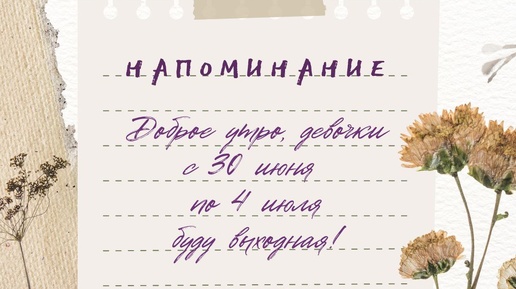 НАПОМИНАНИЕ
Доброе утро, девочки
с 30 июня
по 4 июля
буду выходная!